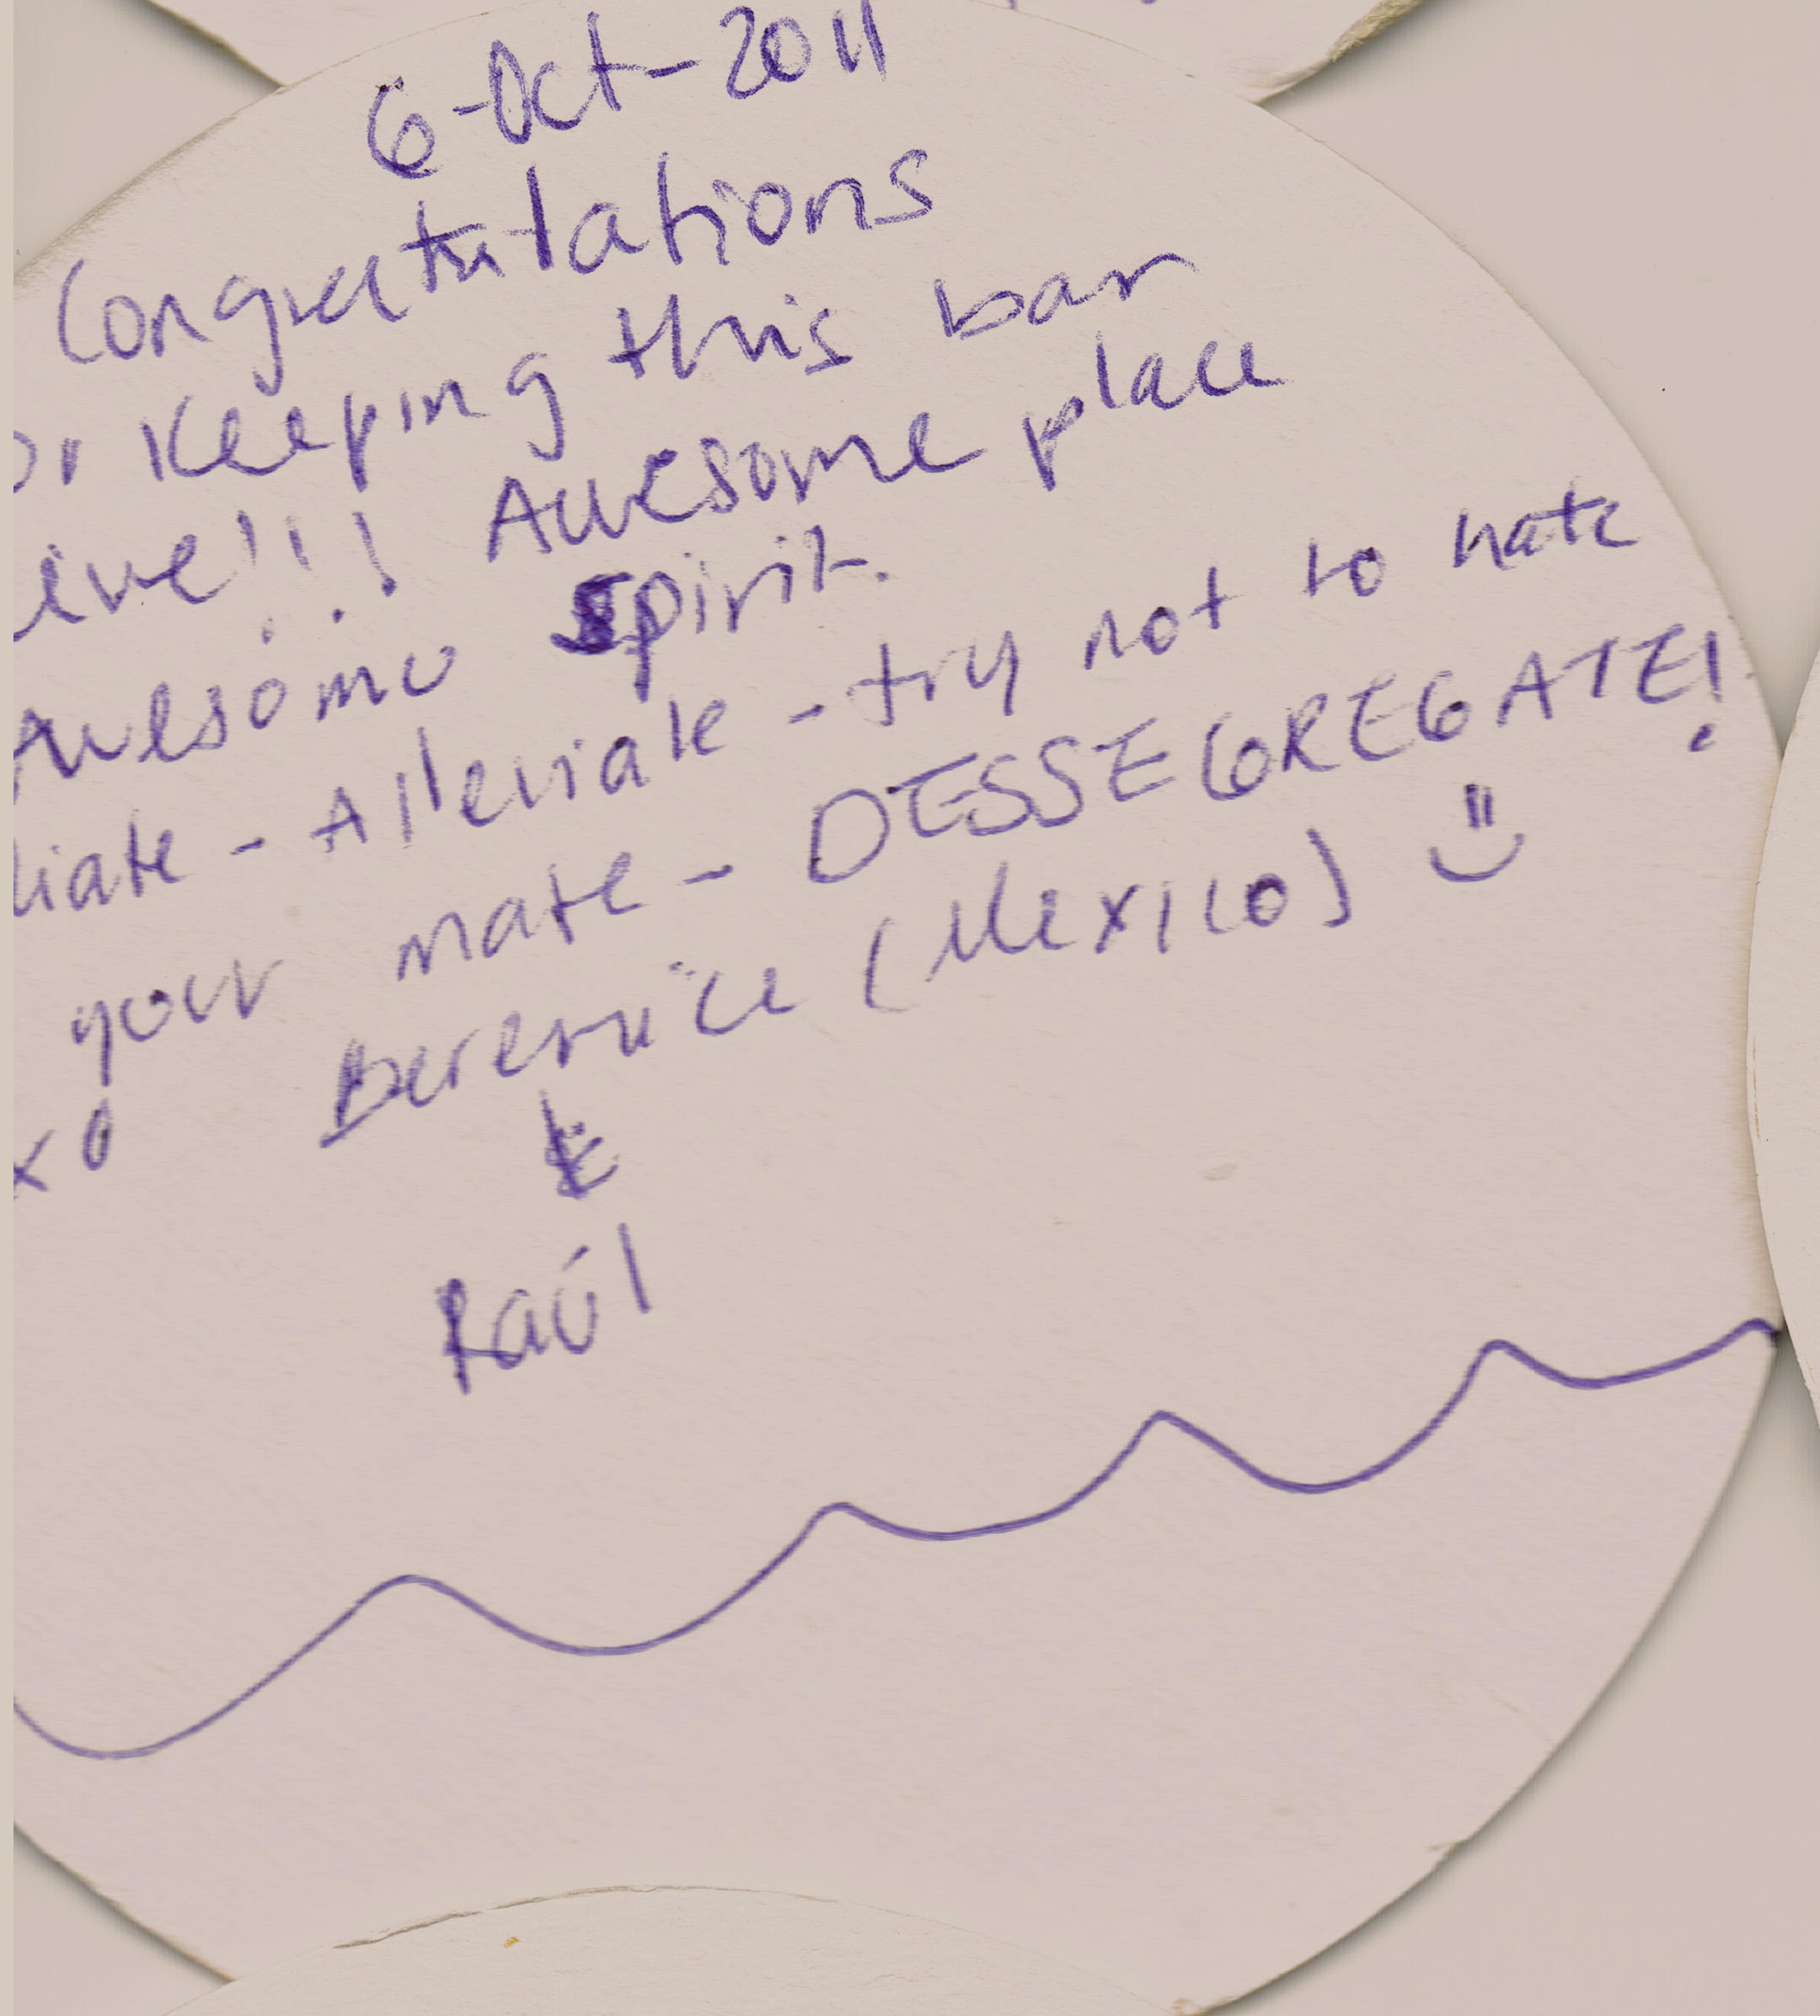 6-Oct-2011
Congratulations
or Keeping this bar
eive!!! Awesome place
Awesome Spirit.
liate - Alleviate - try not to hate
your mate - DESSEGREGATE!
Berenice (Mexico)
xo &
Raúl